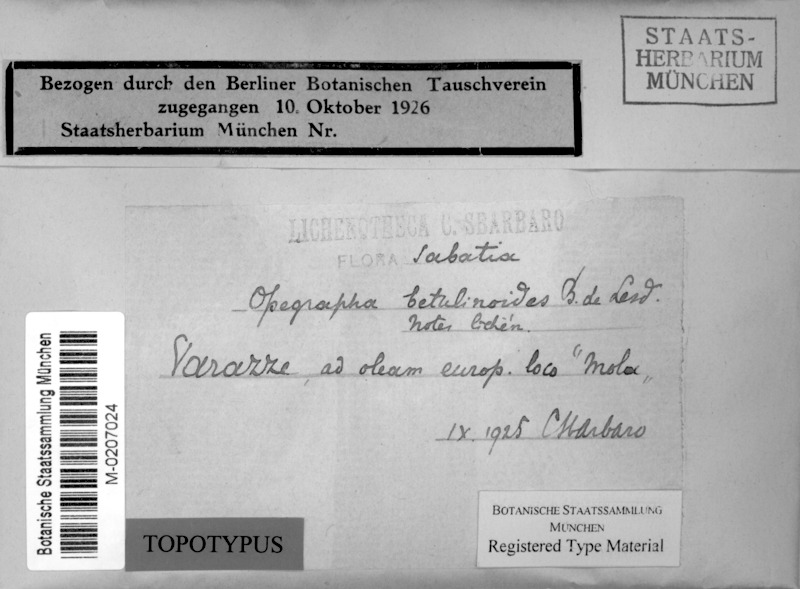 STAATS-
HERBARIUM
MÜNCHEN
Bezogen durch den Berliner Botanischen Tauschverein
zugegangen 10. Oktober 1926
Staatsherbarium München Nr.
LICHENOTHECA C. SBARBARO
FLORA Sabatia
Opegrapha betulinoides B. de Lesd.
Notes Lichén.
Varazze, ad oleam europ. loco "Mola„
IX. 1925 C Sbarbaro
Botanische Staatssammlung München
M-0207024
TOPOTYPUS
BOTANISCHE STAATSSAMMLUNG
MÜNCHEN
Registered Type Material